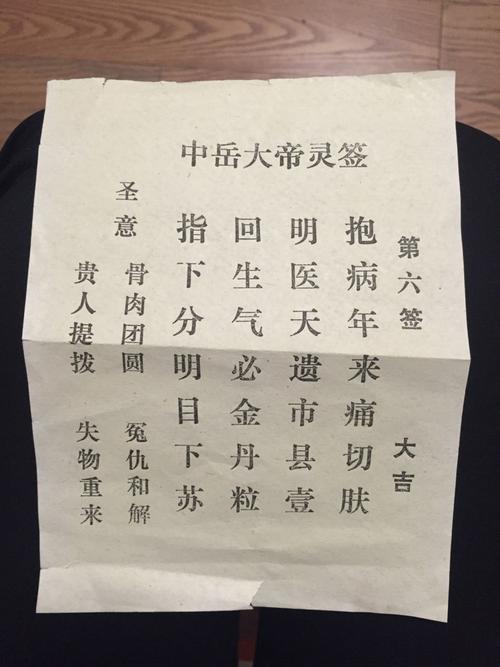 中岳大帝灵签
第六签 大吉
抱病年来痛切肤
明医天遗市县壹
回生气必金丹粒
指下分明目下苏
圣意
骨肉团圆 冤仇和解
贵人提拨 失物重来